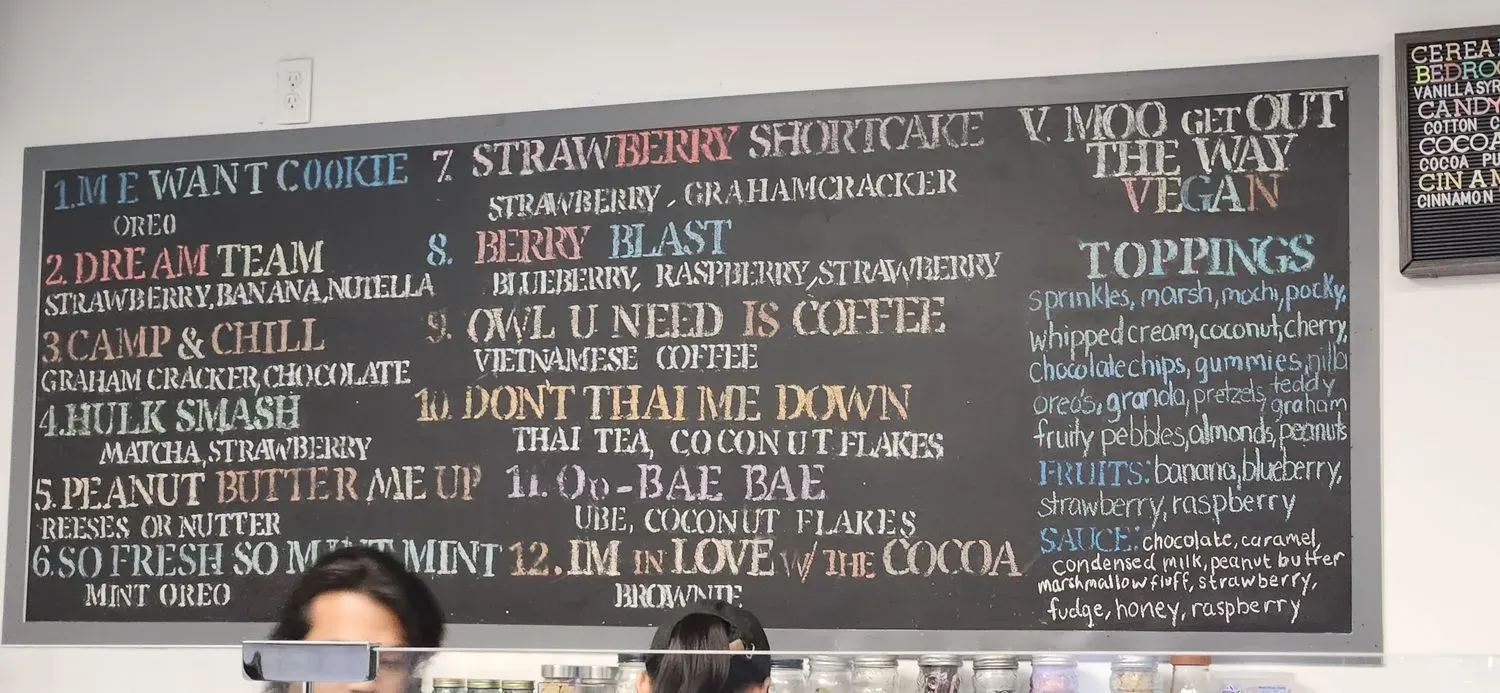 1. ME WANT COOKIE
OREO
2. DREAM TEAM
STRAWBERRY, BANANA, NUTELLA
3. CAMP & CHILL
GRAHAM CRACKER, CHOCOLATE
4. HULK SMASH
MATCHA, STRAWBERRY
5. PEANUT BUTTER ME UP
REESES OR NUTTER
6. SO FRESH SO MINT MINT
MINT OREO
7. STRAWBERRY SHORTCAKE
STRAWBERRY, GRAHAMCRACKER
8. BERRY BLAST
BLUEBERRY, RASPBERRY, STRAWBERRY
9. OWL U NEED IS COFFEE
VIETNAMESE COFFEE
10. DON'T THAI ME DOWN
THAI TEA, COCONUT FLAKES
11. Oo-BAE BAE
UBE, COCONUT FLAKES
12. IM IN LOVE W/ THE COCOA
BROWNIE
V. MOO GET OUT
THE WAY
VEGAN
TOPPINGS
sprinkles, marsh, mochi, pocky,
whipped cream, coconut, cherry,
chocolate chips, gummies, nilla
oreo's, granola, pretzels, teddy graham
fruity pebbles, almonds, peanuts
FRUITS: banana, blueberry,
strawberry, raspberry
SAUCE: chocolate, caramel,
condensed milk, peanut butter
marshmallow fluff, strawberry,
fudge, honey, raspberry
CEREA
BEDRO
VANILLA SYR
CANDY
COTTON C
COCOA
COCOA PU
CINAM
CINNAMON